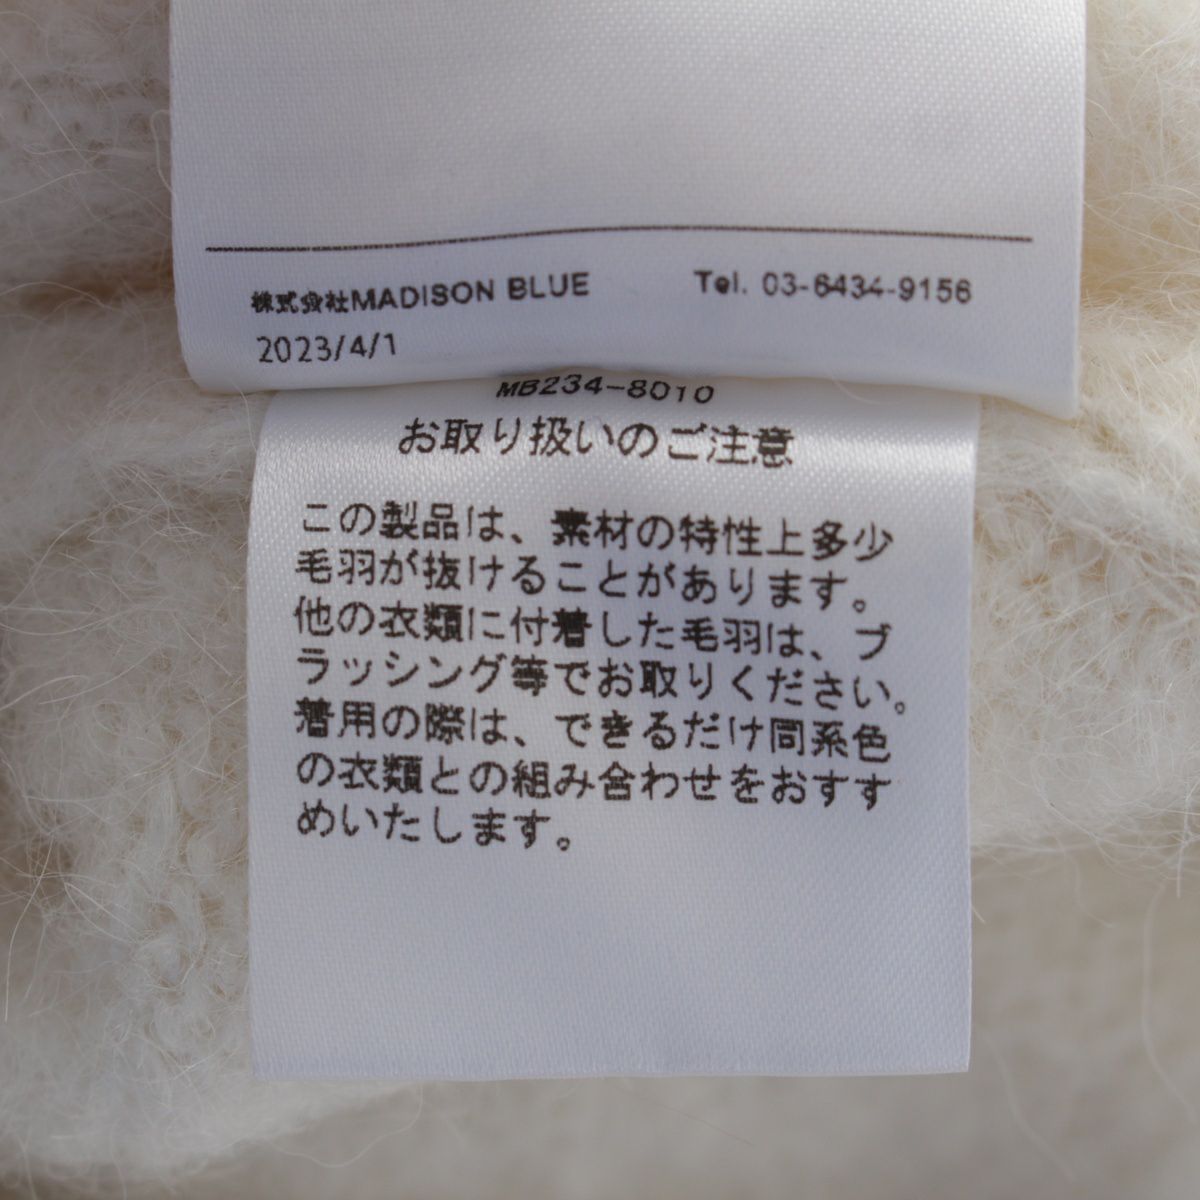 株式会社MADISON BLUE Tel. 03-6434-9156
2023/4/1
MB234-8010
お取り扱いのご注意
この製品は、素材の特性上多少
毛羽が抜けることがあります。
他の衣類に付着した毛羽は、ブ
ラッシング等でお取りください。
着用の際は、できるだけ同系色
の衣類との組み合わせをおすす
めいたします。